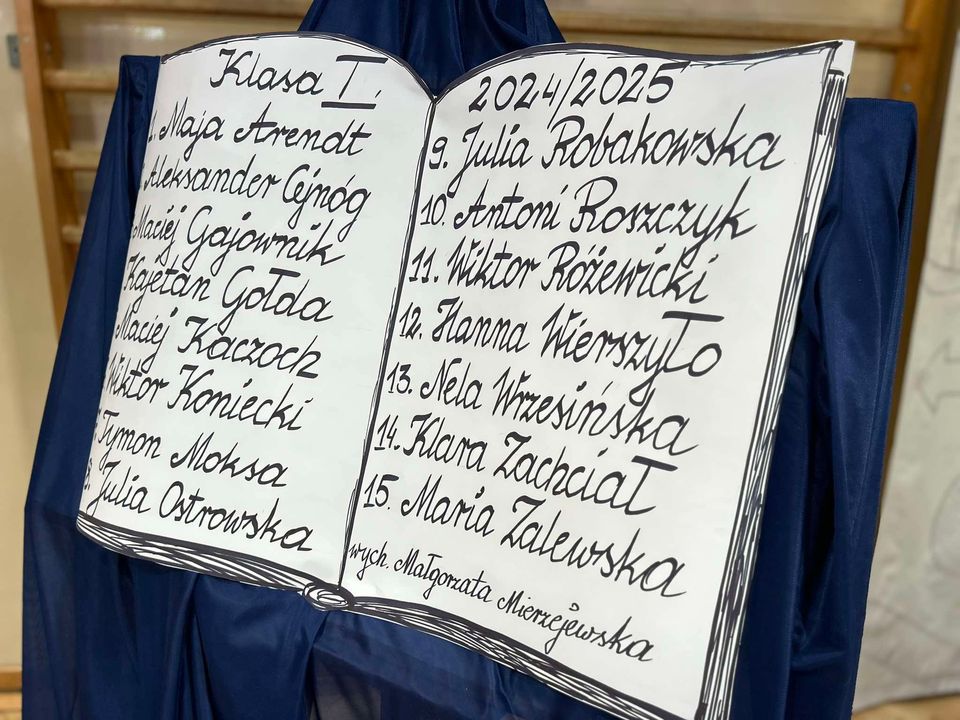 Klasa I.
1. Maja Arendt
Aleksander Cejnóg
Maciej Gajownik
Kajetan Gołda
Maciej Kaczoch
Wiktor Koniecki
7. Tymon Moksa
8. Julia Ostrowska
2024/2025
9. Julia Robakowska
10. Antoni Roszczyk
11. Wiktor Różewicki
12. Hanna Wierszyło
13. Nela Wrzesińska
14. Klara Zachciał
15. Maria Zalewska
wych. Małgorzata Mierzejewska